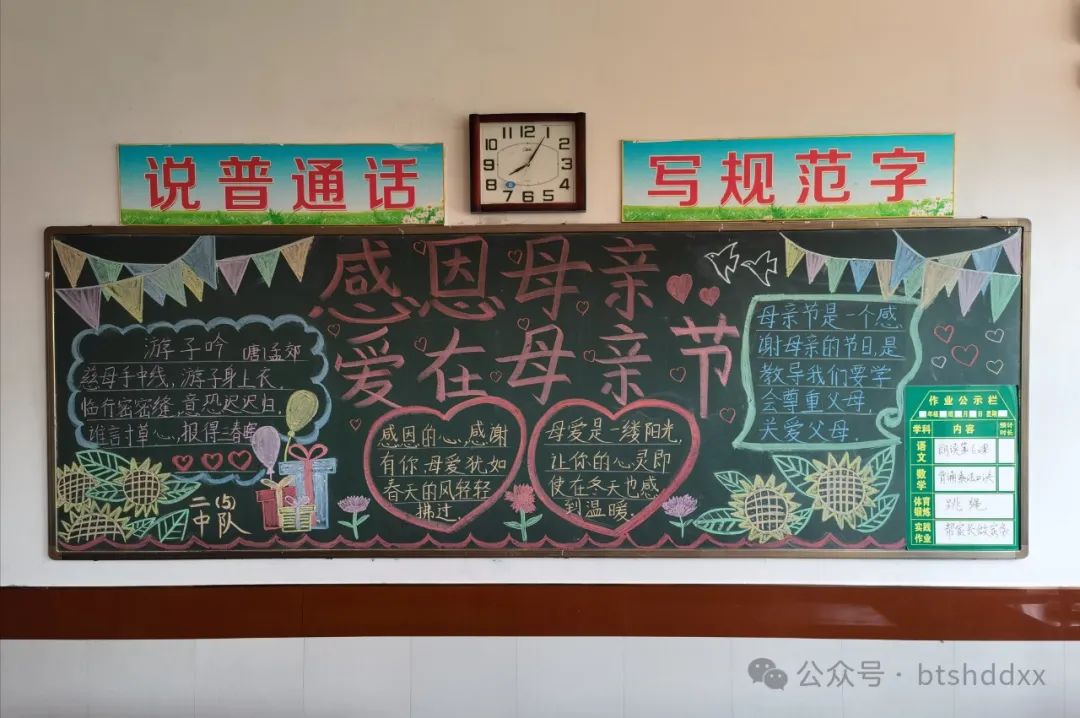 说普通话
11 12 1
10 2
9 3
8 4
7 6 5
写规范字
感恩母亲
爱在母亲节
游子吟 唐 孟郊
慈母手中线,游子身上衣.
临行密密缝,意恐迟迟归.
谁言寸草心,报得三春晖.
二(5)
中队
感恩的心,感谢
有你,母爱犹如
春天的风轻轻
拂过.
母爱是一缕阳光,
让你的心灵即
使在冬天也感
到温暖.
母亲节是一个感
谢母亲的节日,是
教导我们要学
会尊重父母,
关爱父母.
作业公示栏
年级 班 月 日 星期
学科 内容 预计时长
语文
数学
体育锻炼 跳绳
实践作业 帮家长做家务
公众号 · btshddxx